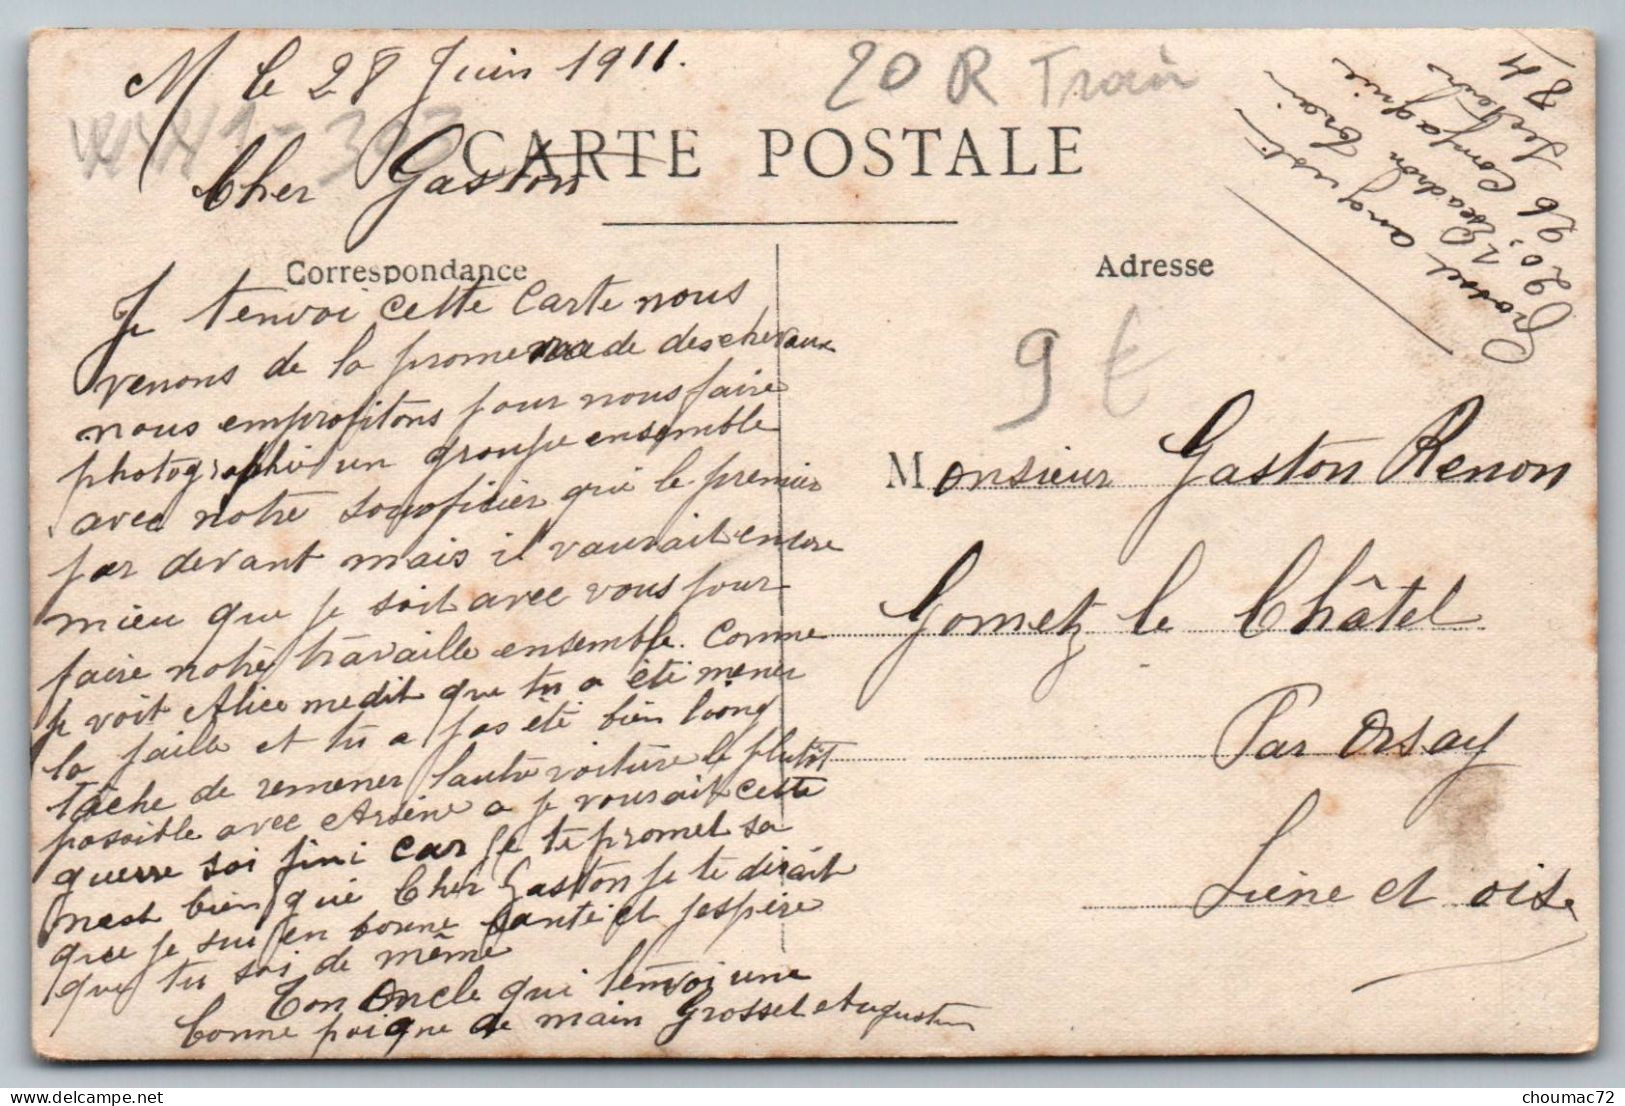 M le 28 Juin 1911.
20 R Train
CARTE POSTALE
Cher Gaston
Correspondance
Adresse
Je tenvoi cette carte nous
venons de la promenade des chevaux
nous emprofitons pour nous faire
photographié un groupe ensemble
avec notre souofisier qui le premier
par devant mais il vaurait encore
mieu que je soit avec vous pour
faire notre travaille ensemble. Comme
je voit Alice me dit que tu a été mener
la paille et tu a pas été bien loong
tâche de remener lautre voiture le plutôt
possible avec Arsène a je vousait cette
guerre soi fini car je te promet sa
nest bien gué Cher Gaston je te dirait
que je sui en bonne santé et jespère
que tu soi de même
Ton Oncle qui tenvoi une
bonne poigne de main Grossel Augustin
Grossel Augusti
20, Escadron Train
26 Compagnie
84
9 €
Monsieur Gaston Renon
Gometz le Châtel
Par Orsay
Seine et oise
choumac72